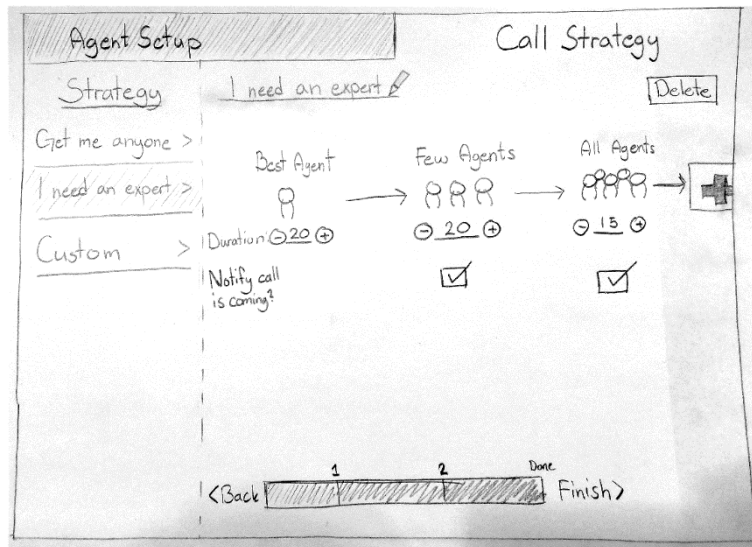 Agent Setup
Call Strategy
Strategy
I need an expert
Delete
Get me anyone >
I need an expert >
Custom >
Best Agent
Few Agents
All Agents
Duration: - 20 +
- 20 +
- 15 +
Notify call
is coming?
1
2
Done
<Back
Finish>